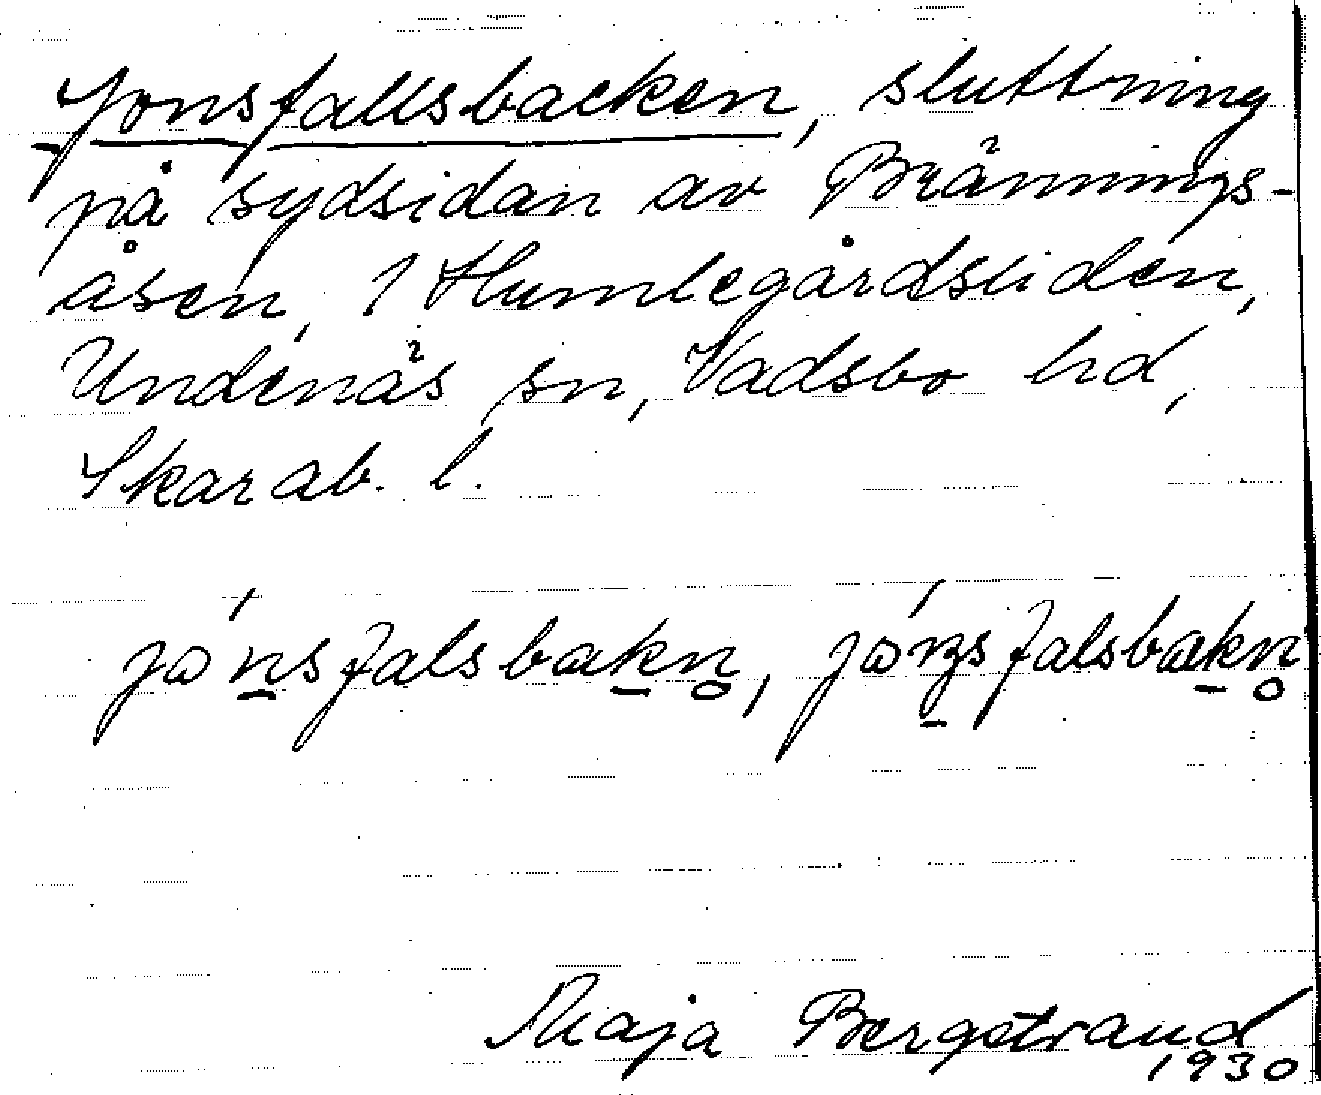 Jonsfallsbacken, sluttning
på sydsidan av Brännings-
åsen, 1 Humlegårdsliden,
Undenäs sn, Vadsbo hd,
Skarab. l.
jonsfalsbakn, jonsfalsbakn
Maja Bergstrand
1930